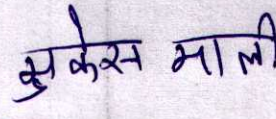 मुकेस माली